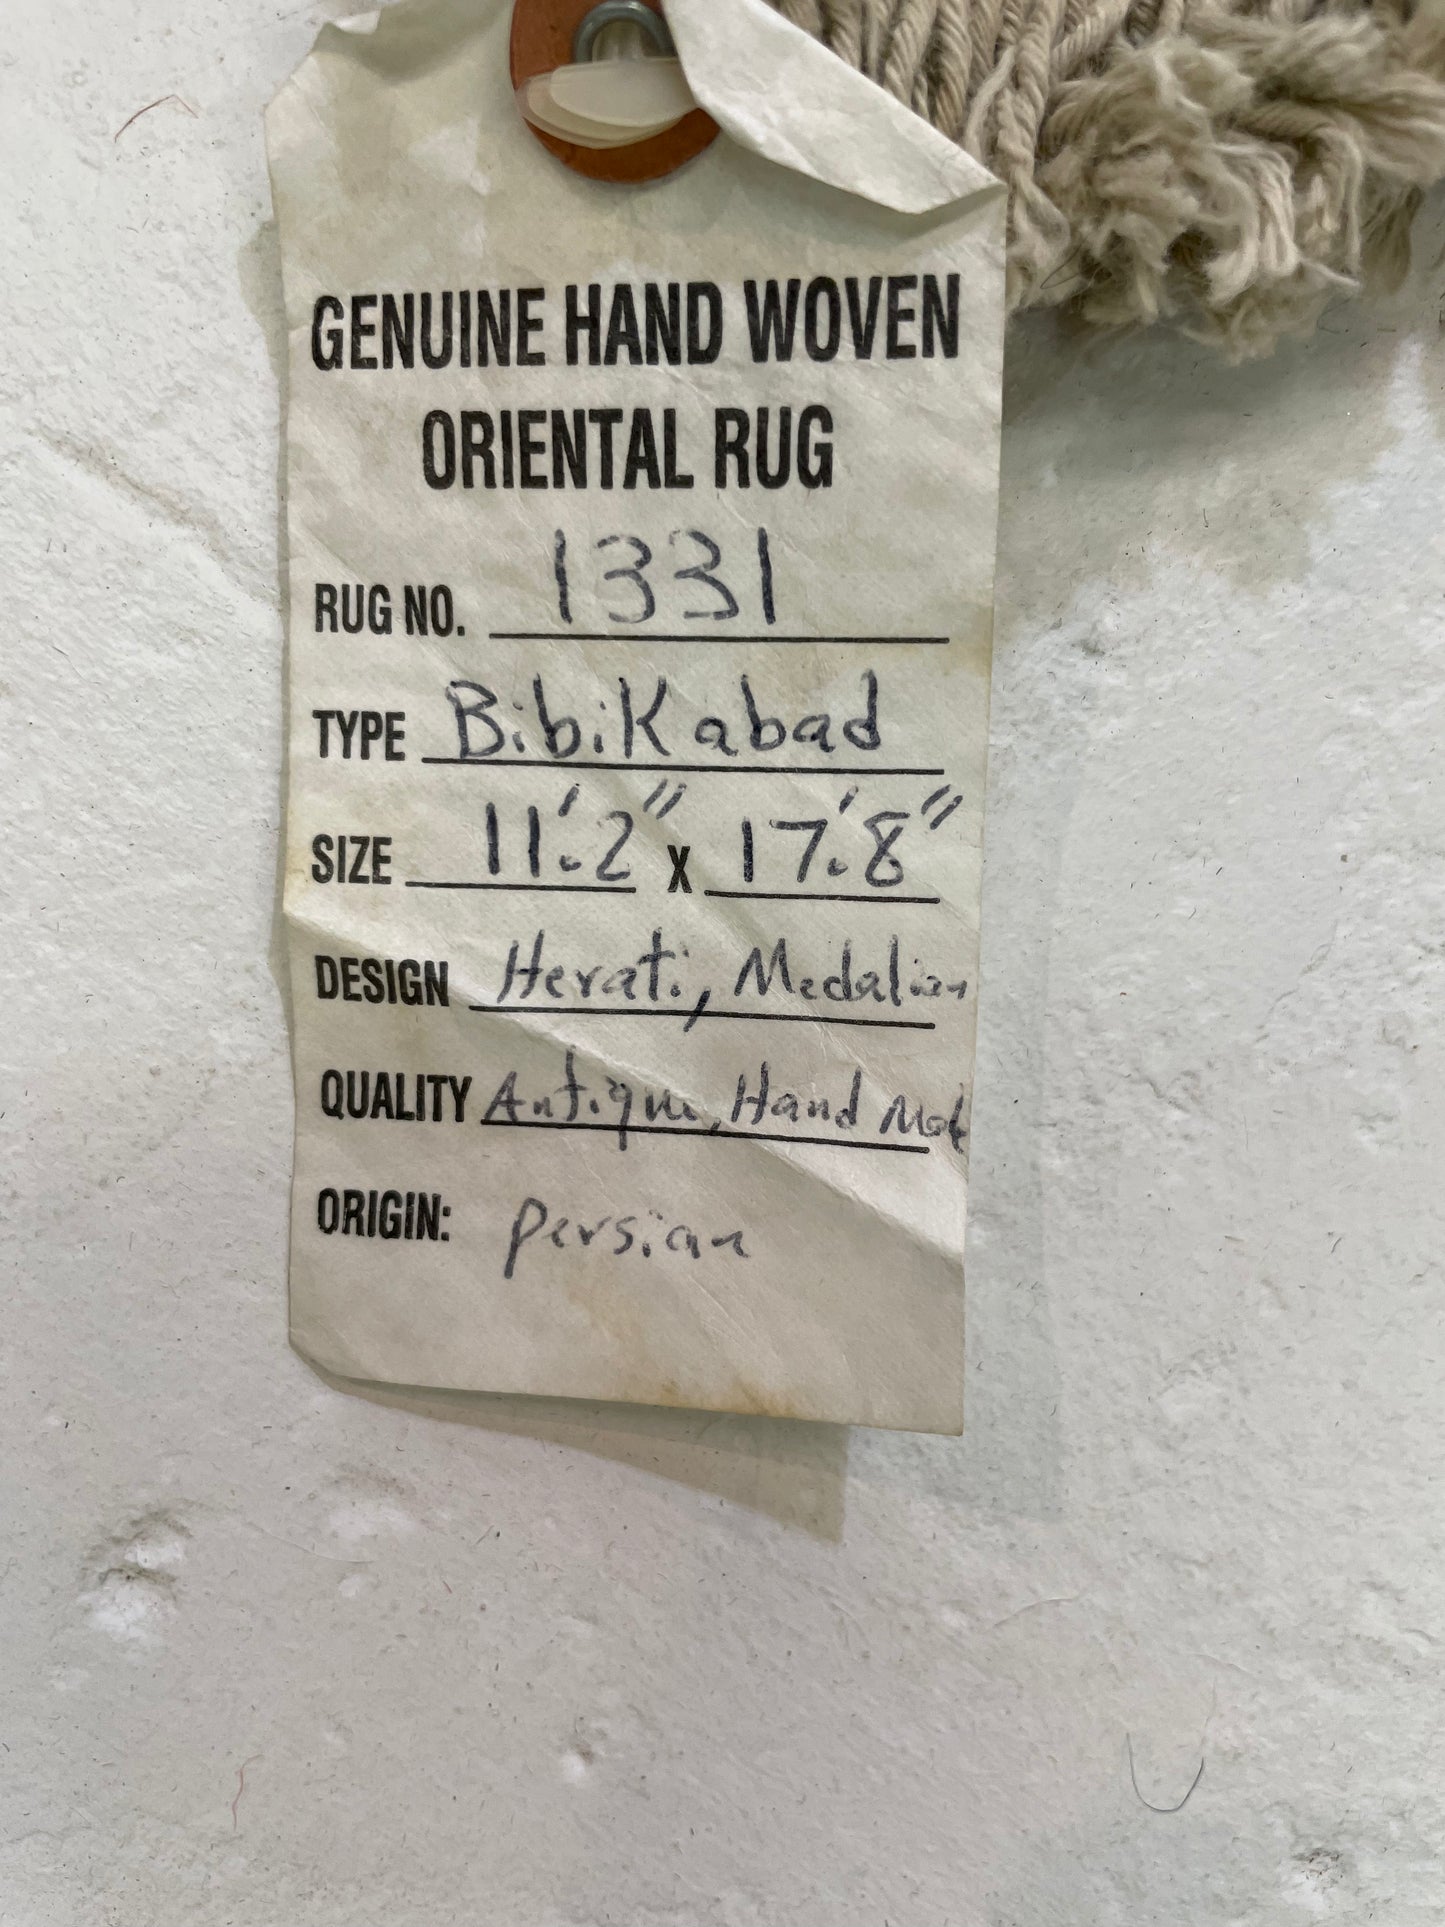 GENUINE HAND WOVEN
ORIENTAL RUG
RUG NO. 1331
TYPE BibiKabad
SIZE 11'.2" X 17'.8"
DESIGN Herati, Medalion
QUALITY Antique, Hand Made
ORIGIN: Persian